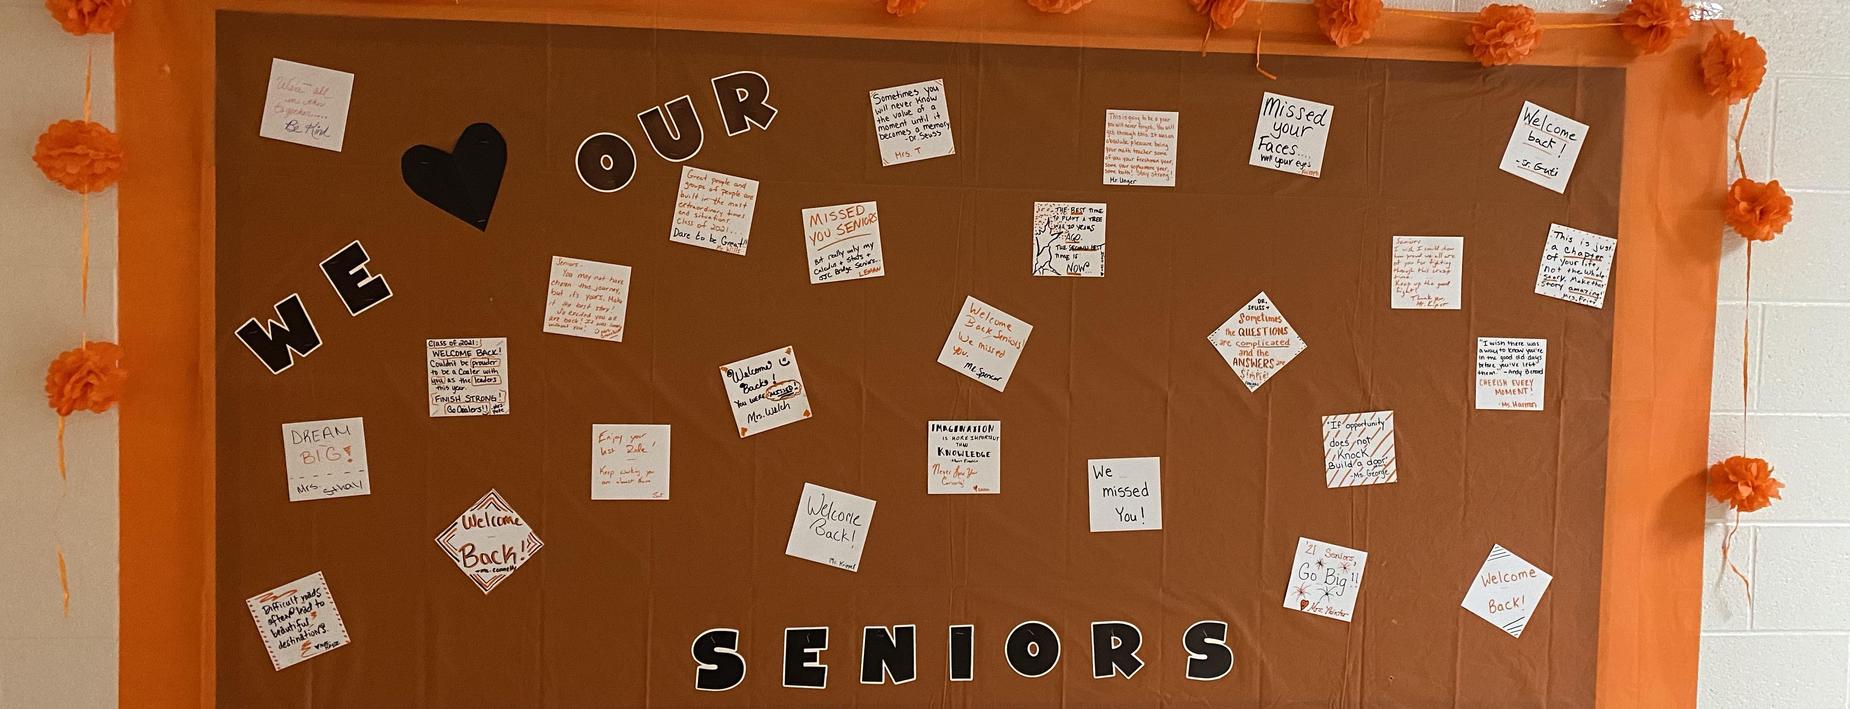 WE
OUR
SENIORS
We're all
in this
together....
Be Kind
Great people and
groups of people are
built in the most
extraordinary times
and situations.
Class of 2021...
Dare to be Great!!
Sometimes you
will never know
the value of a
moment until it
becomes a memory
-Dr. Seuss
Mrs. T
This is going to be a year
you will never forget. You will
get through this. It was an
absolute pleasure being
your math teacher some
of you your freshman year,
some your sophomore year,
some both! Stay strong!
Mr. Unger
Missed
your
Faces....
Welcome
back!
MISSED
YOU SENIORS
But really only my
Calculus + Stats +
Bridge Seniors...
LEMAN
THE BEST TIME
TO PLANT A TREE
WAS 20 YEARS
AGO.
THE SECOND BEST
TIME IS
NOW
Seniors
I wish I could show
how proud we all are
of you for fighting
through this crazy
time.
Keep up the good
fight!
Thank you,
This is just
a chapter
of your life,
not the whole
story. Make the
story amazing!
Seniors-
You may not have
chosen this journey,
but it's yours. Make
it the best story!
So excited you all
are back! It was lonely
without you!
Welcome
Back Seniors!
We missed
you.
Mr. Spencer
DR.
SEUSS
Sometimes
the QUESTIONS
are complicated
and the
ANSWERS are
Simple!
Class of 2021:
WELCOME BACK!
Couldn't be prouder
to be a Coaler with
you as the leaders
this year.
FINISH STRONG!
Go Coalers!!
Welcome
Back!
You were MISSED!
Mrs. Welch
"I wish there was
a way to know you're
in the good old days
before you've left
them." -Andy Bernard
CHERISH EVERY
MOMENT!
-Ms. Harmon
DREAM
BIG!
Mrs.
Enjoy your
last
Keep working you
are almost there
IMAGINATION
IS MORE IMPORTANT
THAN
KNOWLEDGE
Never Lose Your
"If opportunity
does not
Knock
Build a door"
-Ms. George
Welcome
Back!
Welcome
Back!
We
missed
You!
'21 Seniors,
Go Big!!
Welcome
Back!
Difficult roads
often lead to
beautiful
destinations.